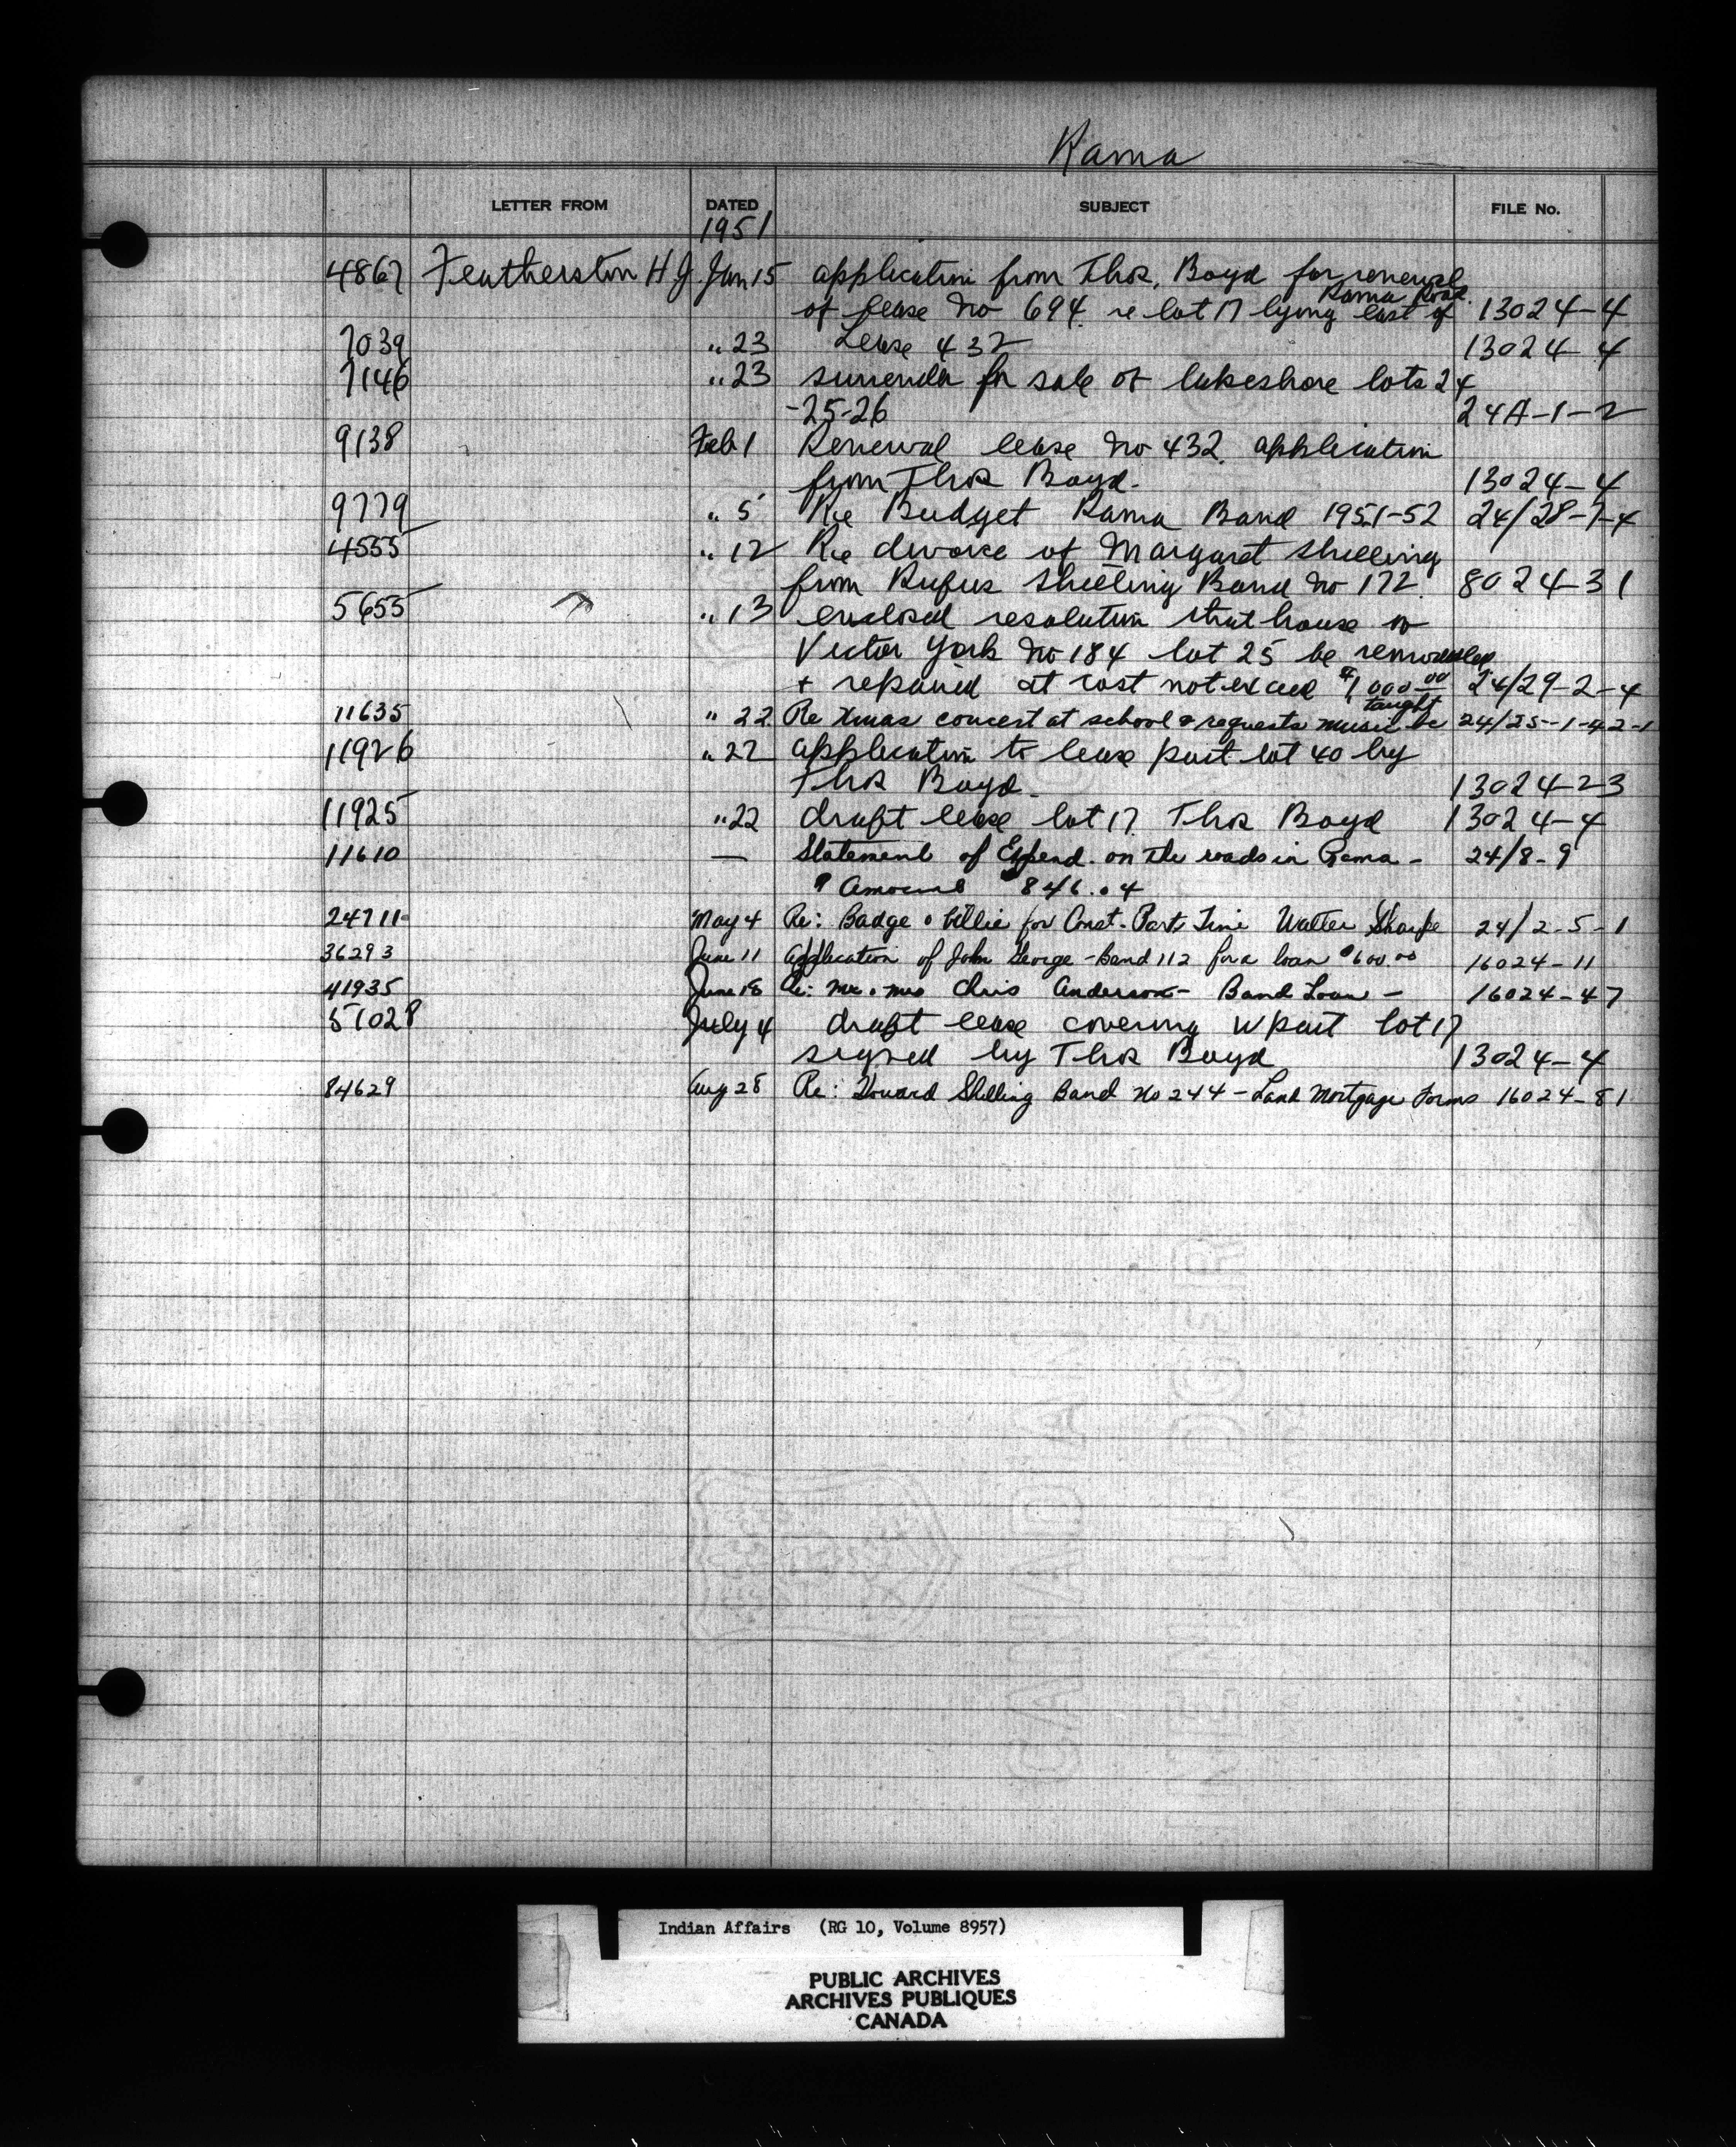 Rama
LETTER FROM DATED SUBJECT FILE No.
1951
4867 Featherston H J. Jan 15 application from Thos. Boyd for renewal
Rama Road.
of lease No 694. re lot 17 lying east of 13024-4
7039 " 23 Lease 432 13024-4
7146 " 23 surrender for sale of lakeshore lots 24
-25-26 24A-1-2
9138 Feb 1 Renewal lease No 432. application
from Thos Boyd. 13024-4
9779 " 5 Re Budget Rama Band 1951-52 24/28-7-4
4555 " 12 Re divorce of Margaret Shilling
from Rufus Shilling Band No 172. 8024-31
5655 " 13 enclosed resolution that house of
Victor York No 184 lot 25 be remodelled
+ repaired at cost not exceed $1,000.00 24/29-2-4
taught
11635 " 22 Re Xmas concert at school & requests music be 24/25-1-42-1
11926 " 22 application to lease part lot 40 by
Thos Boyd. 13024-23
11925 " 22 draft lease lot 17. Thos Boyd 13024-4
11610 — Statement of Expend. on the roads in Rama - 24/8-9
Amount $846.04
24711 May 4 Re: Badge & billie for Const. Part Time Walter Sharpe 24/2-5-1
36293 June 11 Application of John George - Band 112 for a loan $600.00 16024-11
41935 June 18 Re: Mr. & Mrs Chris Anderson - Band Loan - 16024-47
51028 July 4 draft lease covering W part lot 17
signed by Thos Boyd 13024-4
84629 Aug 28 Re: Howard Shilling Band No 244 - Land Mortgage Forms 16024-81
Indian Affairs (RG 10, Volume 8957)
PUBLIC ARCHIVES
ARCHIVES PUBLIQUES
CANADA